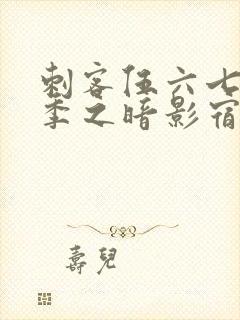 刺客伍六七
季之暗影宿
壽兒